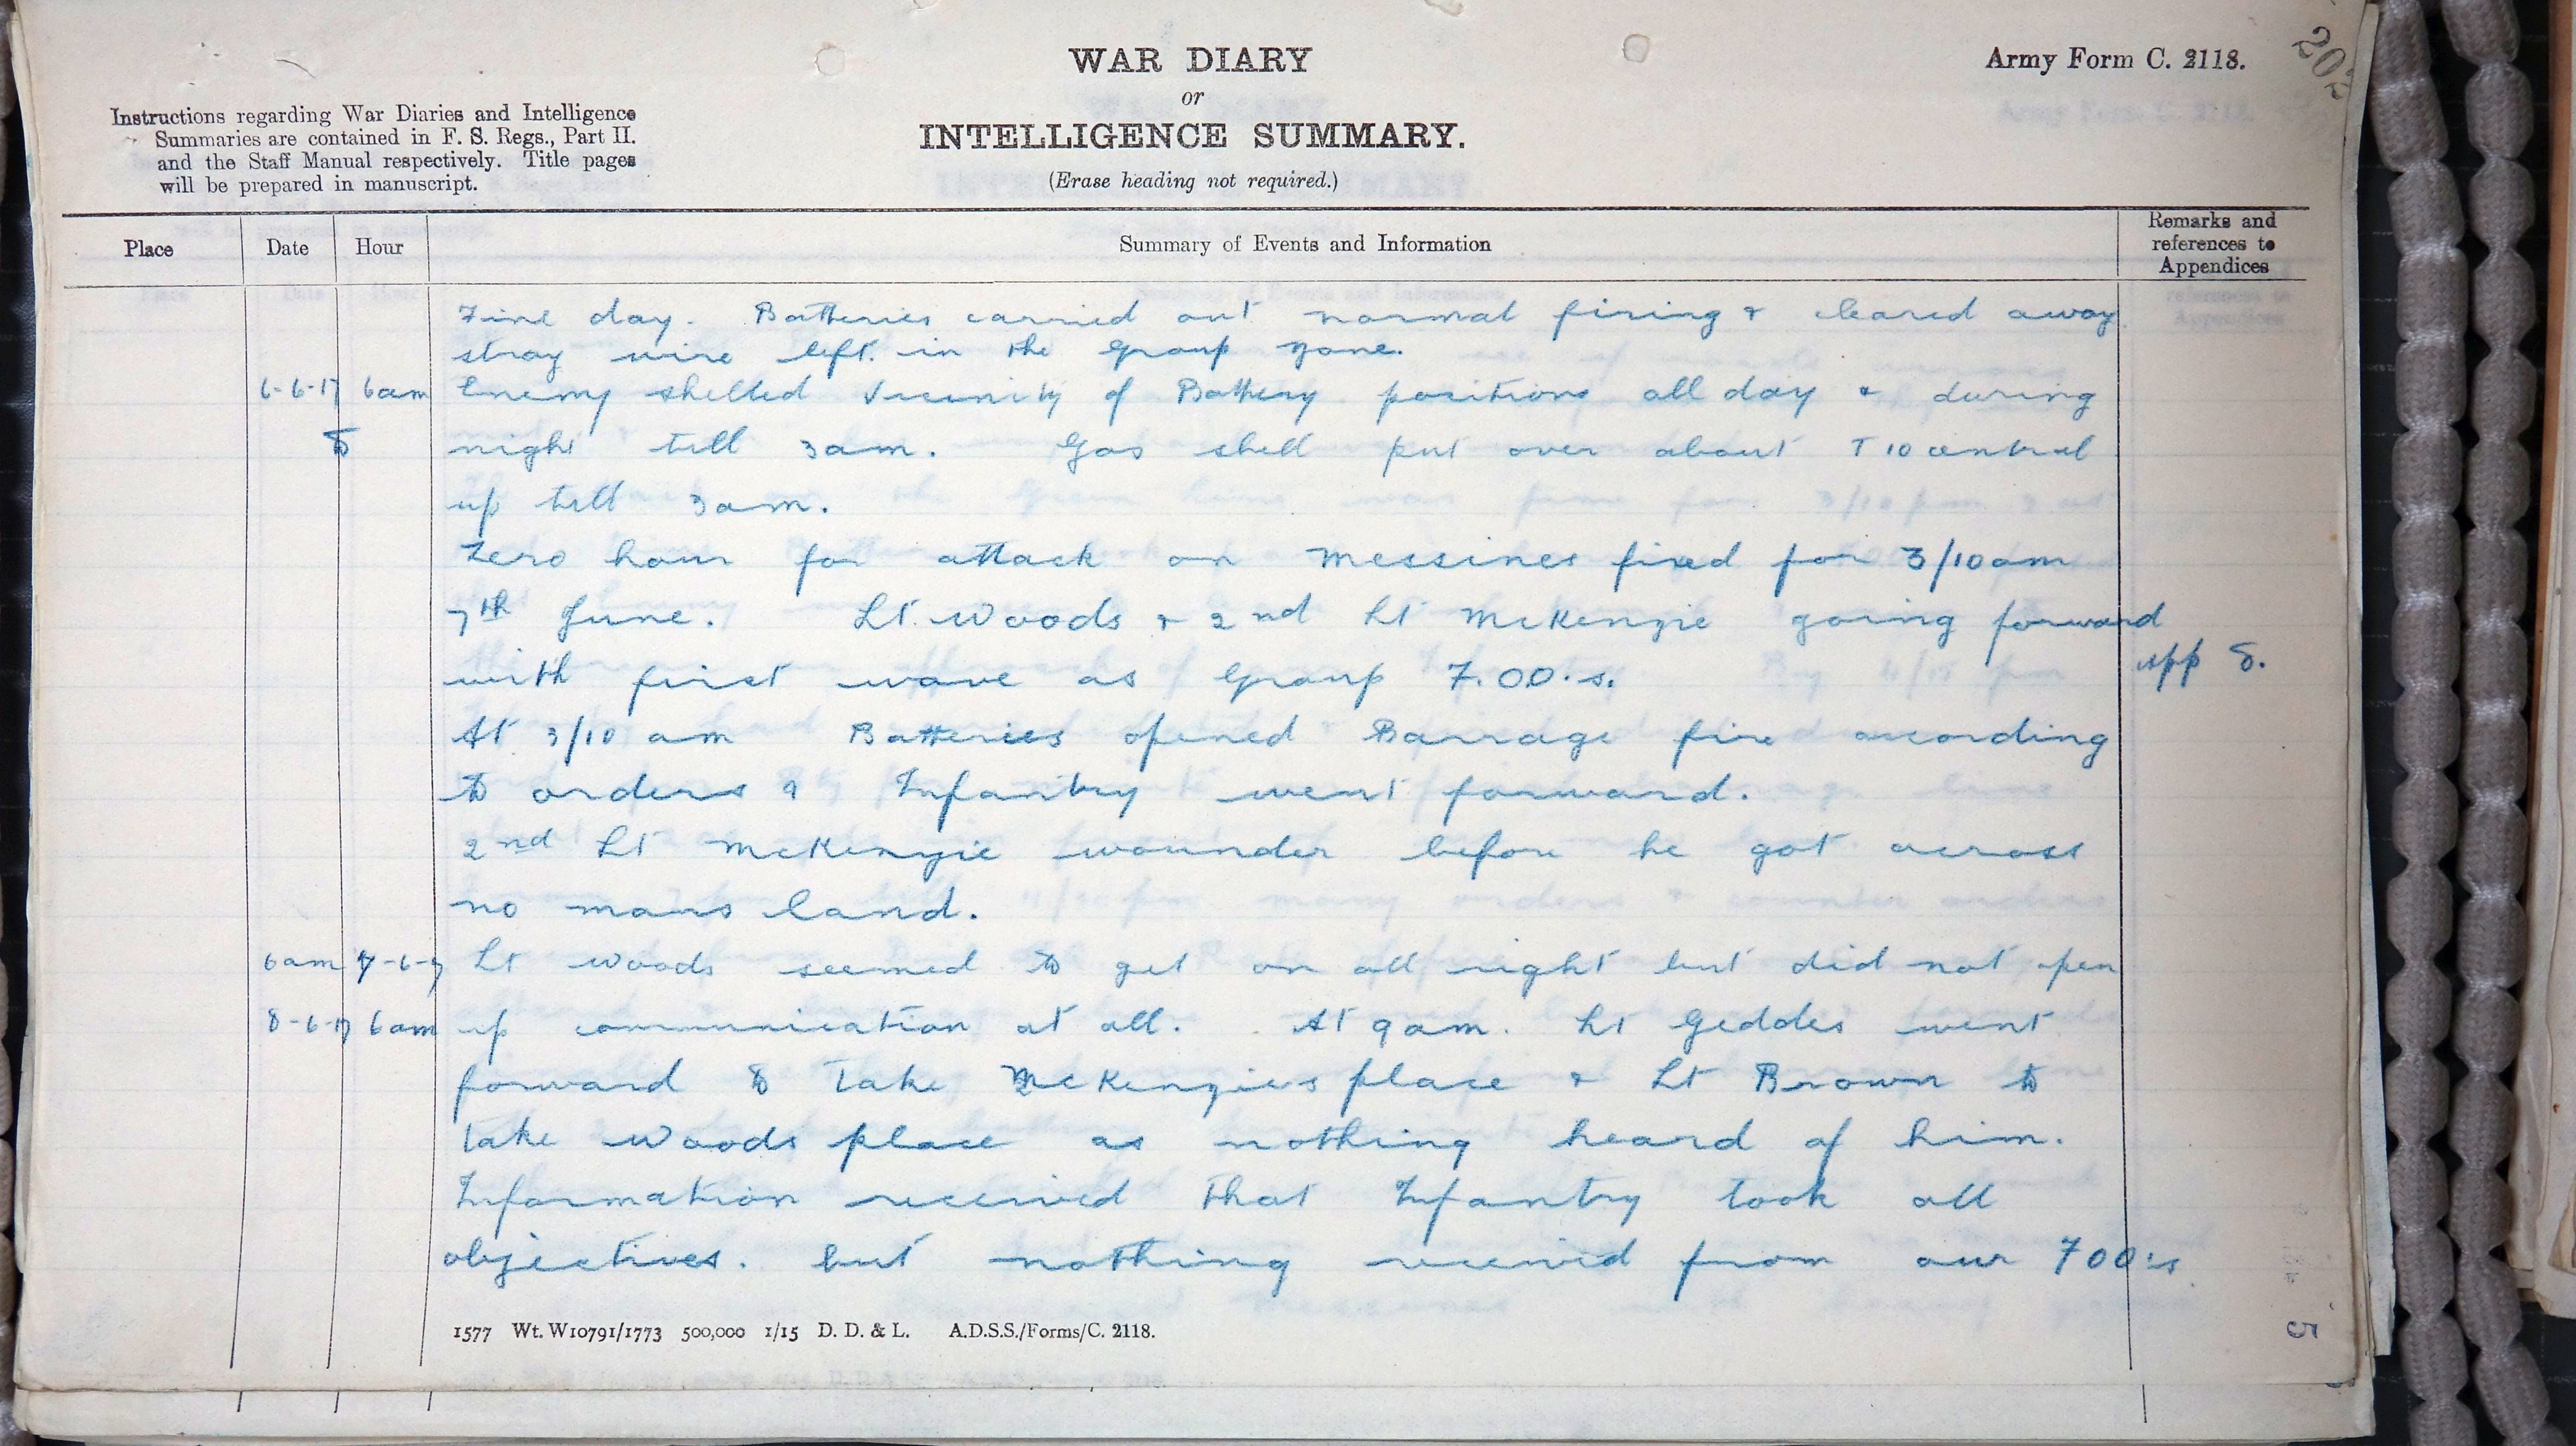 202
WAR DIARY
or
INTELLIGENCE SUMMARY.
(Erase heading not required.)
Army Form C. 2118.
Instructions regarding War Diaries and Intelligence
Summaries are contained in F. S. Regs., Part II.
and the Staff Manual respectively. Title pages
will be prepared in manuscript.
Place Date Hour Summary of Events and Information Remarks and references to Appendices
Fine day. Batteries carried out normal firing & cleared away
stray wire left. in the Group zone.
6-6-17 6am Enemy shelled vicinity of Battery positions all day & during
to night till 3am. Gas shell put over about T 10 central
up till 3am.
Zero hour for attack on Messines fixed for 3/10am
7th June. Lt. Woods & 2nd Lt McKenzie going forward
with first wave as Group F.O.O.s. App 8.
At 3/10 am Batteries opened Barrage fire according
to orders & Infantry went forward.
2nd Lt McKenzie wounder before he got across
no mans land.
6am 7-6-17 Lt Woods seemed to get on all right but did not open
8-6-17 6am up communication at all. At 9am. Lt Geddes went
forward to take McKenzies place & Lt Brown to
take Woods place as nothing heard of him.
Information received that Infantry took all
objectives. but nothing received from our FOO's
1577 Wt. W10791/1773 500,000 1/15 D. D. & L. A.D.S.S./Forms/C. 2118.
5